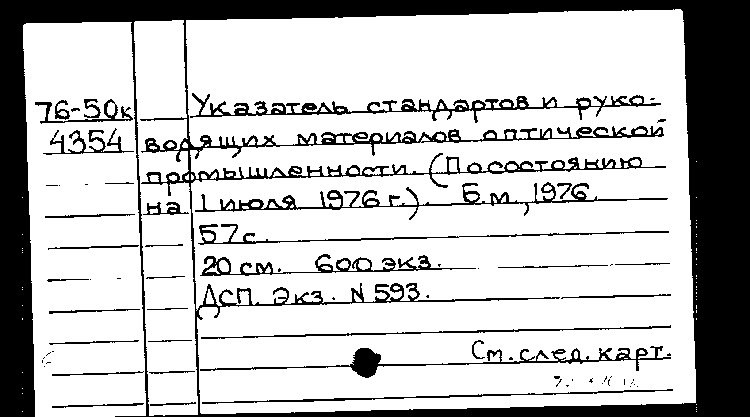 76-50к Указатель стандартов и руко-
4354 водящих материалов оптической
промышленности. (По состоянию
на 1 июля 1976 г.). Б.м., 1976.
57 с.
20 см. 600 экз.
ДСП. Экз. N 593.
См. след. карт.